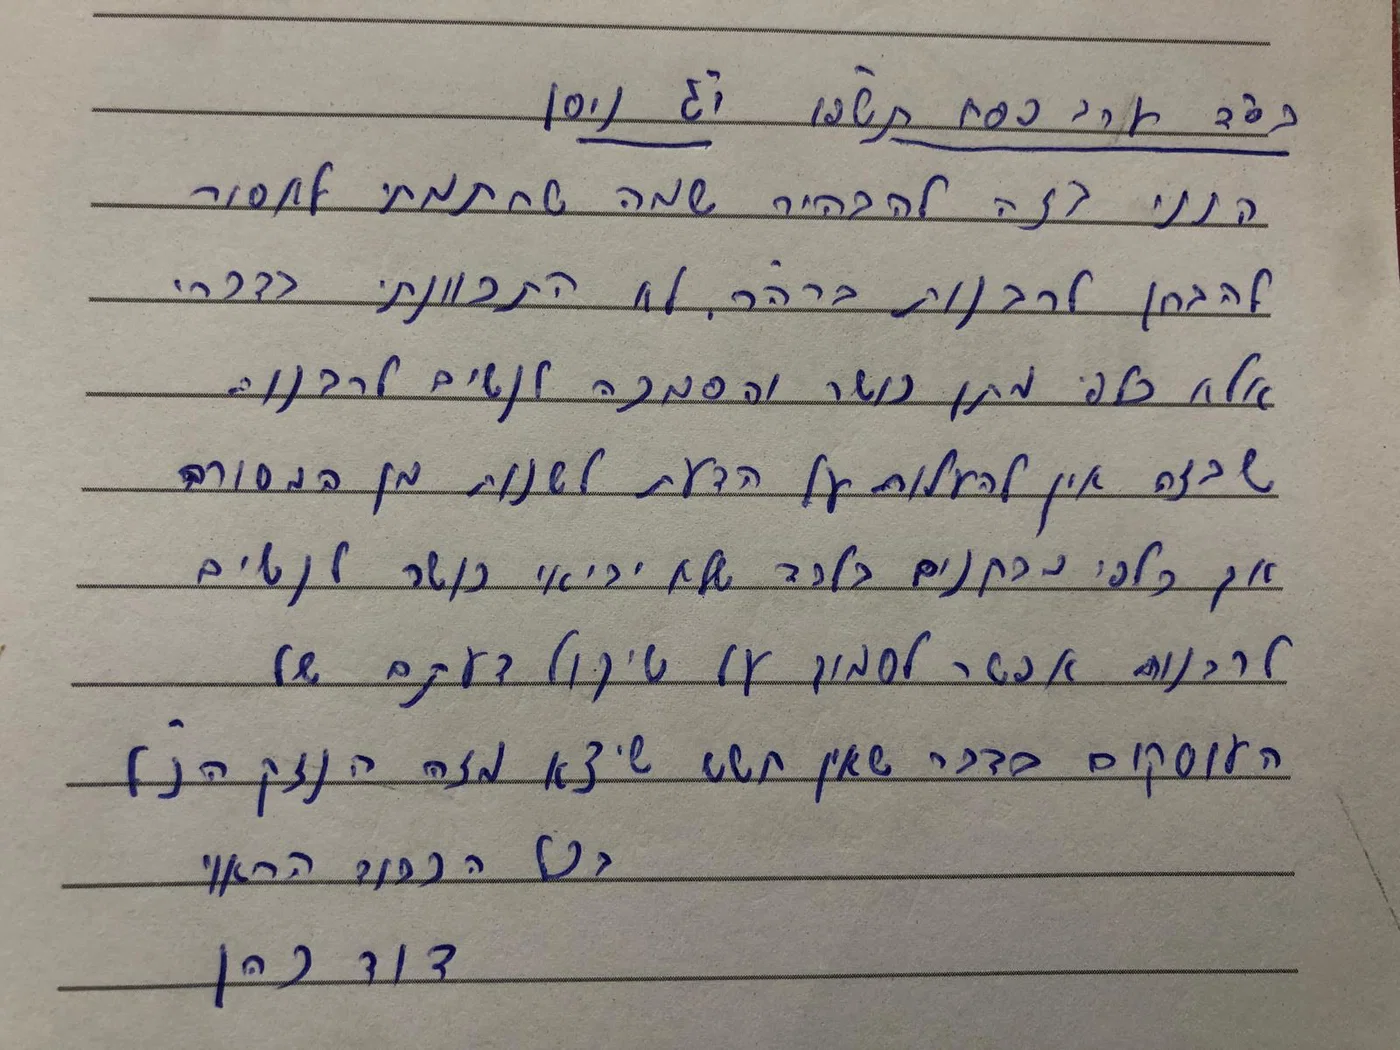 בס"ד ערב פסח תשפ"ו י"ג ניסן
הנני בזה להבהיר שמה שחתמתי לאסור
להבחן לרבנות ברה"ר, לא התכוונתי בדברי
אלא כלפי מתן כושר והסמכה לנשים לרבנות
שבזה אין להעלות על הדעת לשנות מן המסורה
אך כלפי מבחנים בלבד שלא יביאו כושר לנשים
לרבנות אפשר לסמוך על שיקול דעתם של
העוסקים בדבר שאין חשש שיצא מזה הנזק הנ"ל
בכל הכבוד הראוי
דוד כהן